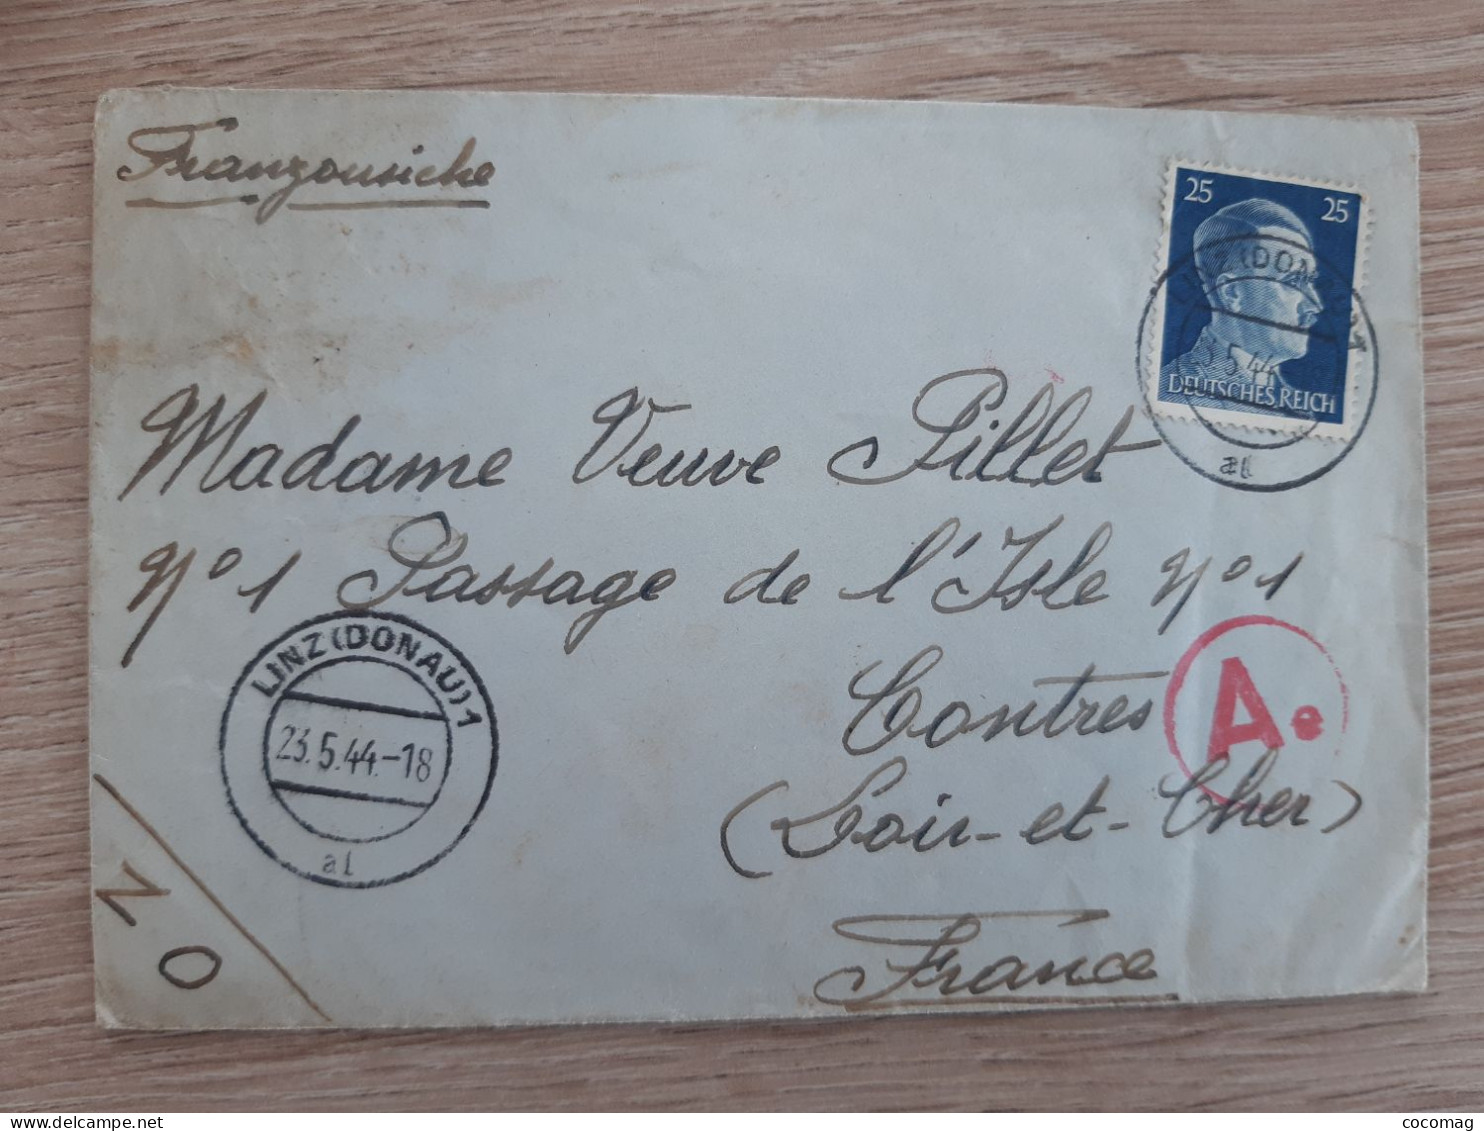 Franzousiche
25 25
DEUTSCHES REICH
LINZ (DONAU) 1
23.5.44
al
Madame Veuve Pillet
N° 1 Passage de l'Isle N° 1
Contres
(Loir-et-Cher)
France
LINZ (DONAU) 1
23.5.44.-18
al
Ae
N
O
cocomag